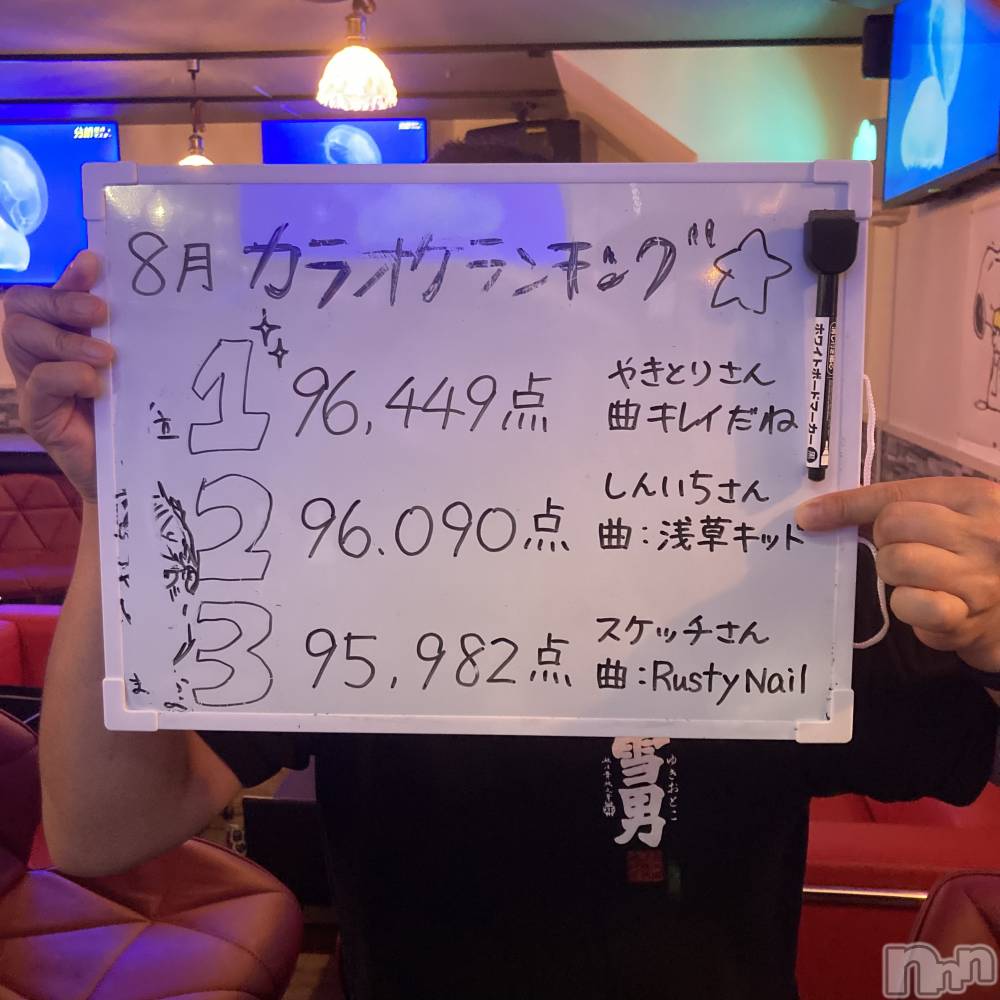 8月 カラオケランキング☆
1 96,449点 やきとりさん
曲キレイだね
2 96.090点 しんいちさん
曲:浅草キッド
3 95,982点 スケッチさん
曲:Rusty Nail
ホワイトボードマーカー
雪男
ゆきおとこ
nnn